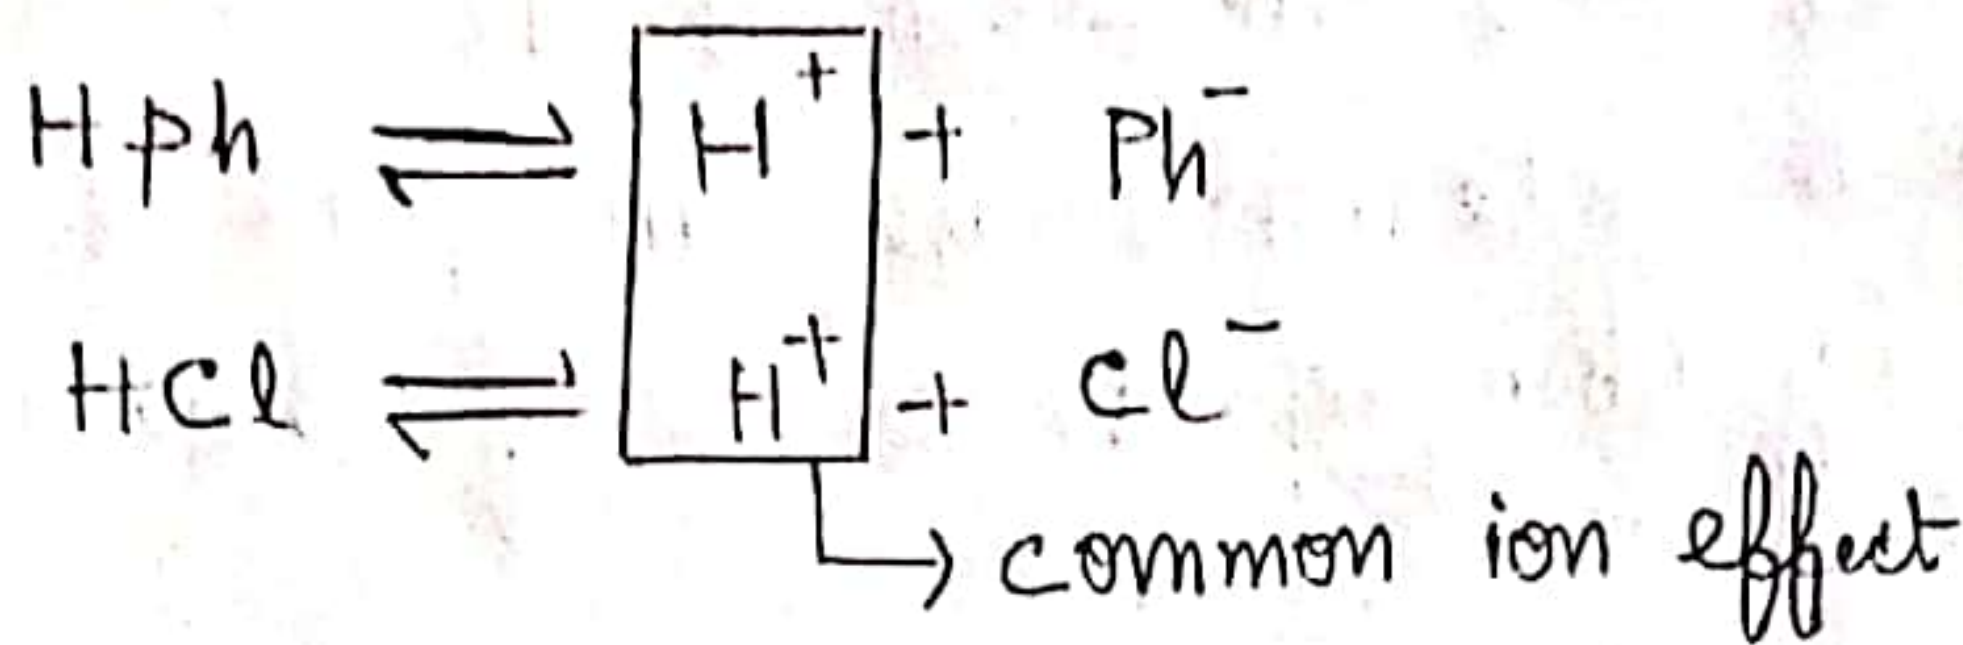 Hph ⇌ H⁺ + Ph⁻
HCl ⇌ H⁺ + Cl⁻
→ common ion effect